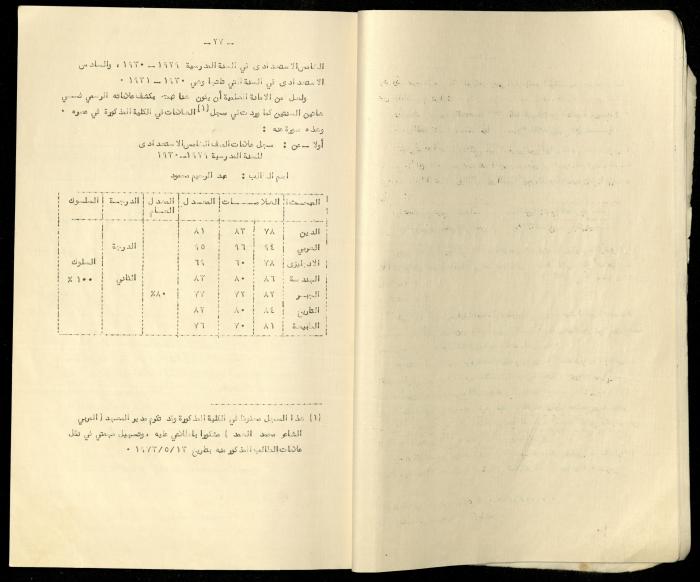 ــ ٢٧ ــ
الخامس الاستعدادى في السنة الدرسية ١٩٢٩ ــ ١٩٣٠ ، والسادس
الاستعدادى في السنة التي تلتها وهي ١٩٣٠ ــ ١٩٣١ ٠
ولعل من الامانة العلمية أن يكون هنا ثبت يكشف علاماته الرسمي لسني
هاتين السنتين كما وردت في سجل (١) العلامات في الكلية المذكورة في عصره ٠
وهذه صورة عنه :
أولا ــ عن : سجل علامات الصف الخامس الاستعدادى
للسنة الدرسية ١٩٢٩ــ١٩٣٠
اسم الطالب : عبد الرحيم محمود
المبحث العلامــــات المعدل المعدل العام الدرجة السلوك
الدين ٧٨ ٨٣ ٨١
العربي ٩٤ ٩٦ ٩٥ الدرجة
الانجليزى ٧٨ ٦٠ ٦٩ السلوك
الهندسة ٨٦ ٨٠ ٨٣ الثاني ١٠٠ ٪
الجبر ٨٢ ٧٢ ٧٧ ٨٠٪
التاريخ ٨٤ ٨٠ ٨٢
الطبيعة ٨١ ٧٠ ٧٦
(١) هذا السجل محفوظ في الكلية المذكورة وقد تكرم مدير المعهد ( العربي
الشاعر محمد العمد ) مشكورا باطلاعي عليه ، وتسهيل مهمتي في نقل
علامات الطالب المذكور عنه بتاريخ ١٩٧٣/٥/١٣ ٠